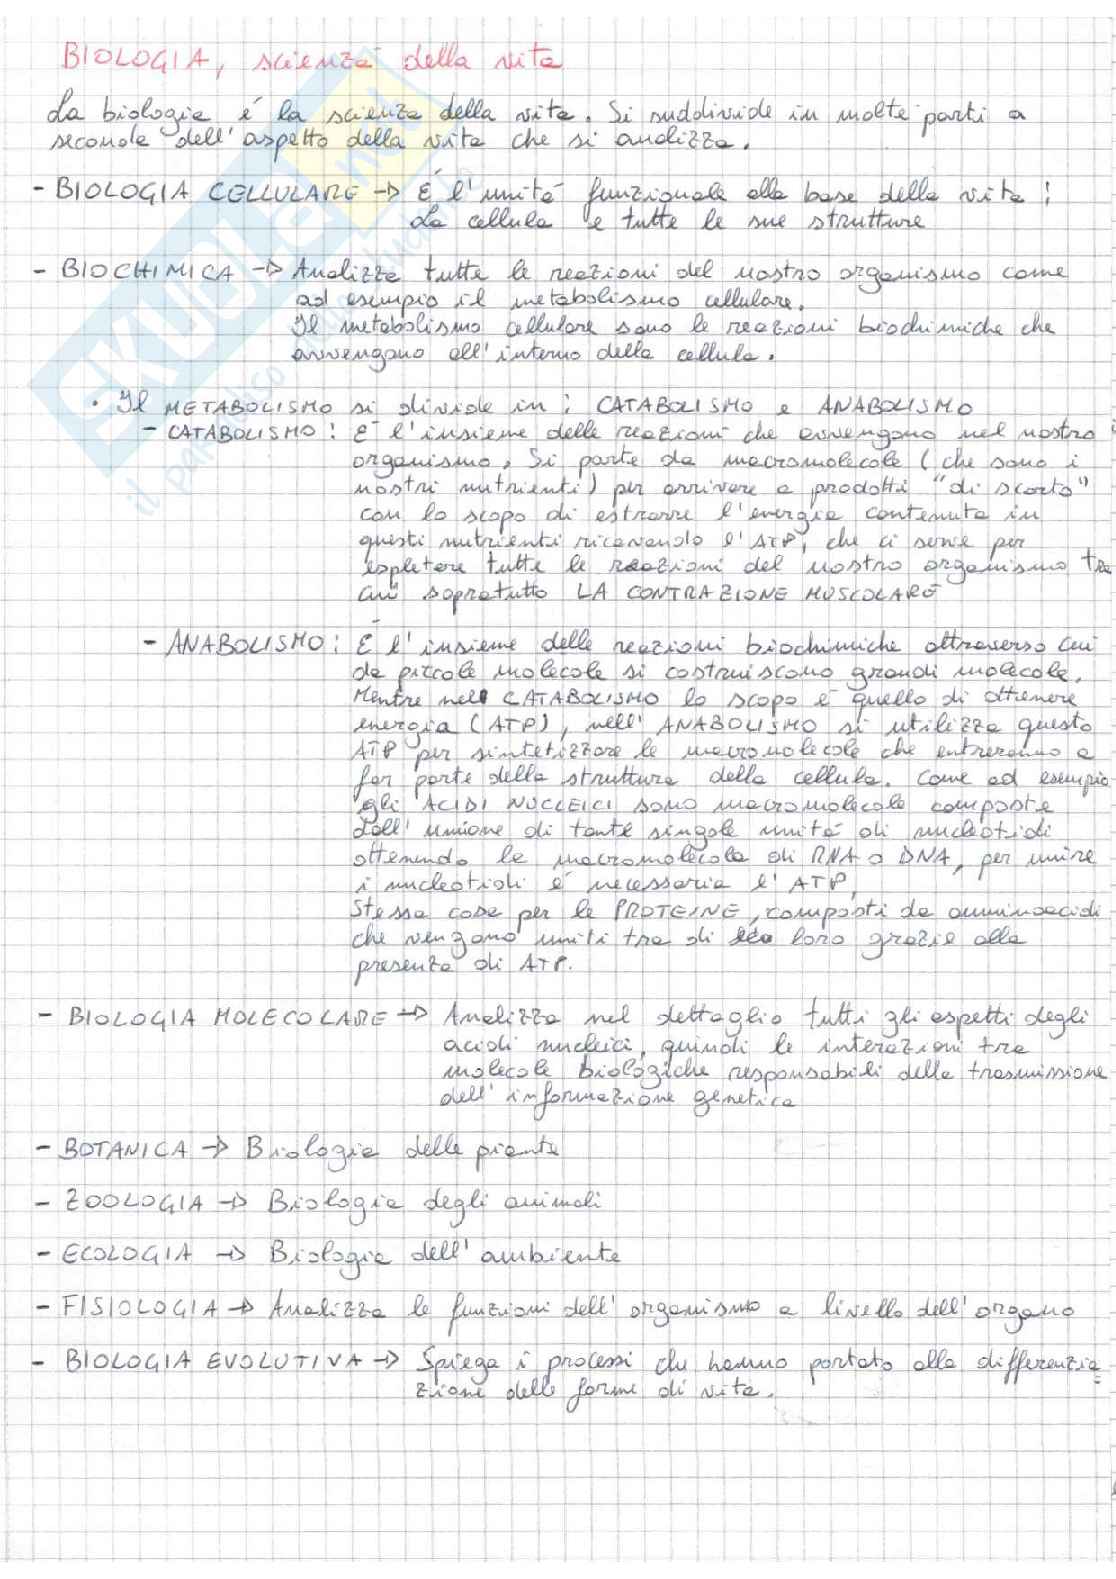 BIOLOGIA, scienza della vita
La biologia è la scienza della vita. Si suddivide in molte parti a
seconda dell'aspetto della vita che si analizza.
- BIOLOGIA CELLULARE → È l'unità funzionale alla base della vita :
La cellula e tutte le sue strutture
- BIOCHIMICA → Analizza tutte le reazioni del nostro organismo come
ad esempio il metabolismo cellulare.
Il metabolismo cellulare sono le reazioni biochimiche che
avvengano all'interno della cellula.
• Il METABOLISMO si divide in : CATABOLISMO e ANABOLISMO
- CATABOLISMO : È l'insieme delle reazioni che avvengano nel nostro
organismo. Si parte da macromolecole (che sono i
nostri nutrienti) per arrivare a prodotti "di scarto"
con lo scopo di estrarre l'energia contenuta in
questi nutrienti ricavando l'ATP, che ci serve per
espletare tutte le reazioni del nostro organismo tra
cui sopratutto LA CONTRAZIONE MUSCOLARE
- ANABOLISMO : È l'insieme delle reazioni biochimiche attraverso cui
da piccole molecole si costruiscono grandi molecole.
Mentre nel CATABOLISMO lo scopo è quello di ottenere
energia (ATP), nell'ANABOLISMO si utilizza questo
ATP per sintetizzare le macromolecole che entreranno a
far parte della struttura della cellula. Come ad esempio
gli ACIDI NUCLEICI sono macromolecole composte
dall'unione di tante singole unità di nucleotidi
ottenendo le macromolecole di RNA o DNA, per unire
i nucleotidi è necessaria l'ATP,
Stessa cosa per le PROTEINE, composti da amminoacidi
che vengano uniti tra di loro grazie alla
presenza di ATP.
- BIOLOGIA MOLECOLARE → Analizza nel dettaglio tutti gli aspetti degli
acidi nucleici, quindi le interazioni tra
molecole biologiche responsabili della trasmissione
dell'informazione genetica
- BOTANICA → Biologia delle piante
- ZOOLOGIA → Biologia degli animali
- ECOLOGIA → Biologia dell'ambiente
- FISIOLOGIA → Analizza le funzioni dell'organismo a livello dell'organo
- BIOLOGIA EVOLUTIVA → Spiega i processi che hanno portato alla differenzia
zione delle forme di vita.
SKUOLA.net